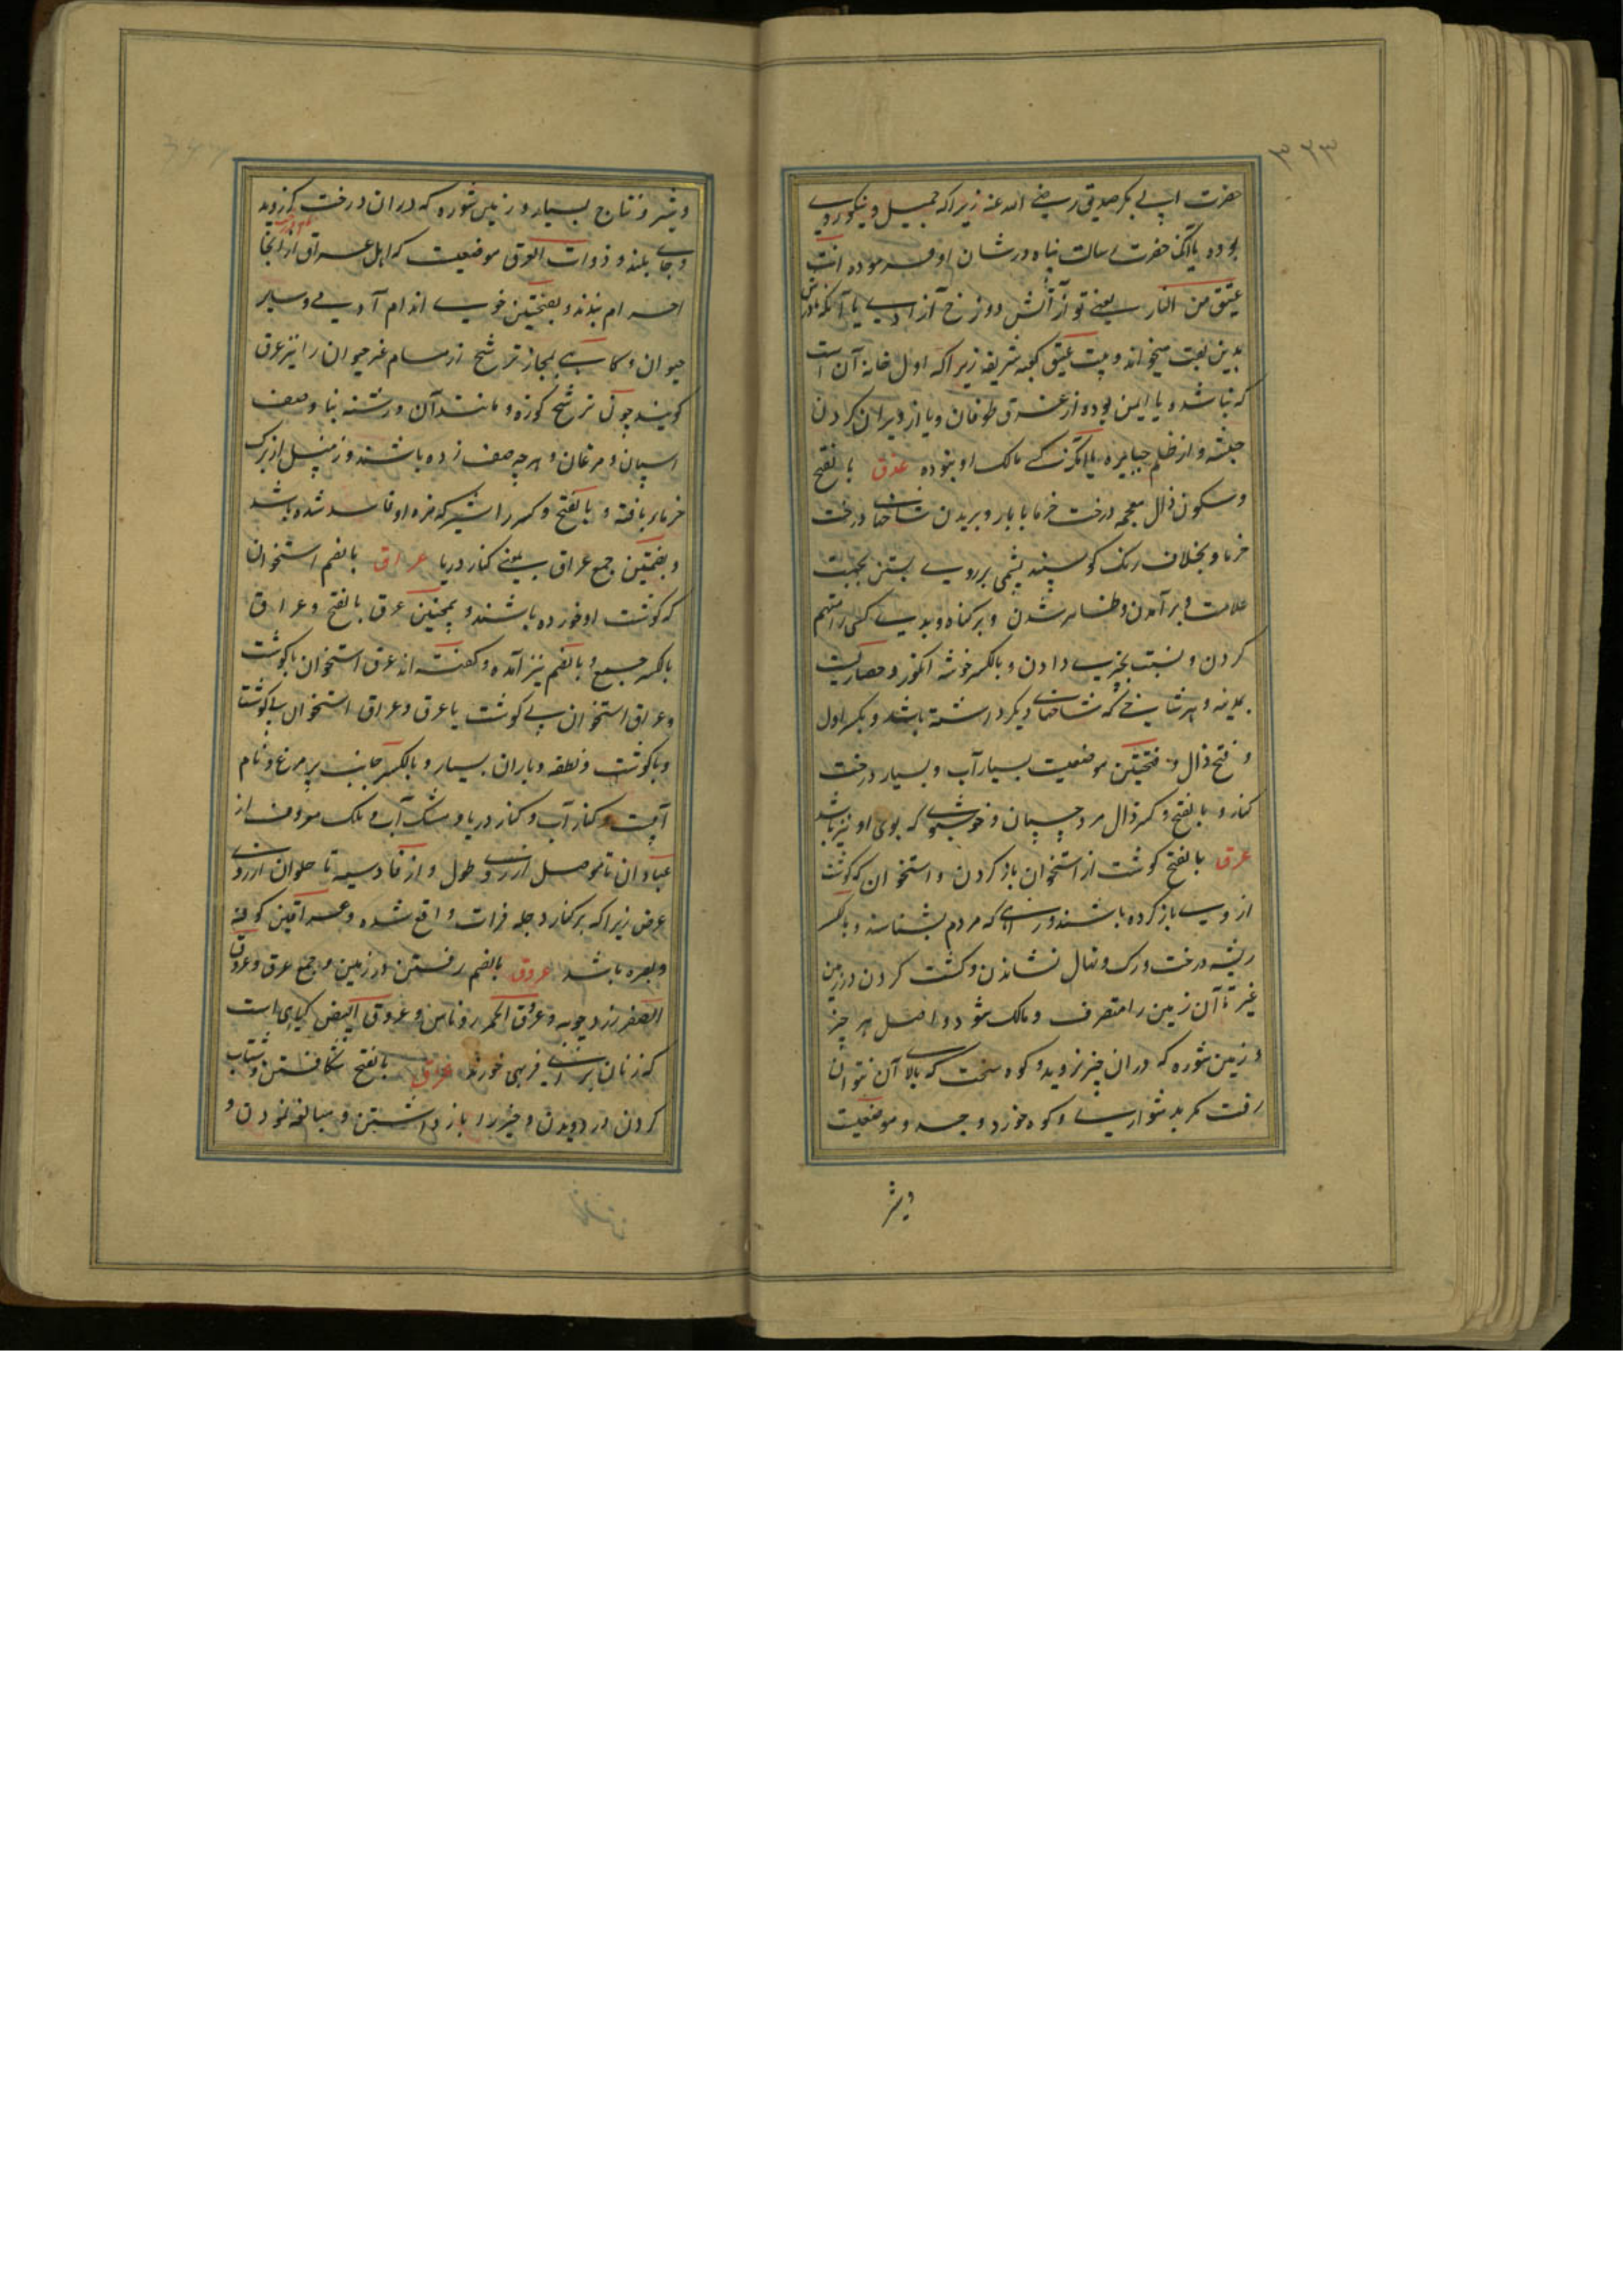 ۳۲۳
حضرت ابی بکر صدیق رضی الله عنه زیرا که جمیل و نیکوروی
بوده یا آنکه حضرت رسالت پناه در شان او فرموده انت
عتیق من النار یعنی تو از آتش دوزخ آزادی یا آنکه مادرش
بدین لقب میخواند و بیت عتیق کعبه شریفه زیرا که اول خانه آن است
که بنا شده یا ایمن بوده از غرق طوفان و یا از ویران کردن
حبشه و از ظلم جبابره یا آنکه کسی مالک او نبوده عذق بالفتح
و سکون ذال معجمه درخت خرما با بار و بریدن شاخهای درخت
خرما و بخلاف رنک کوسپند پشمی بر روی بستن بجهت
علامت و برآمدن و ظاهر شدن و بر کناه و بدی کسی را متهم
کردن و نسبت بچیزی دادن و بالکسر خوشه انکور و حصاریست
بمدینه و هر شاخی که شاخهای دیکر داشته باشد و بکسر اول
و فتح ذال و فتحتین موضعیست بسیار آب و بسیار درخت
کنار و بالفتح و کسر ذال مرد چسپان و خوشبوی که بوی او تیز باشد
عرق بالفتح کوشت از استخوان باز کردن و استخوان که کوشت
از وی باز کرده باشند و راهی که مردم بشناسند و بالکسر
ریشه درخت و رک و نهال نشاندن و کشت کردن در زمین
غیر تا آن زمین را متصرف و مالک شود و اصل هر چیز
و زمین شوره که در ان چیز نروید و کوه سخت که بالای آن نتوان
رفت مکر بدشواری و کوه خورد و جسد و موضعیست
و شیر
و شیر و نتاج بسیار و زمین شوره که در ان درخت کز روید
و جای بلند و ذوات العرق موضعیست که اهل عراق از انجا
احرام بندند و بفتحتین خوی اندام آدمی و سایر
حیوان و کاهی بمجاز ترشح از مسام غیر حیوان را نیز عرق
کویند چون ترشح کوزه و مانند آن و رشته بنا وصف
اسپان و مرغان و هرچه صف زده باشند و زنبیل از برک
خرما بافته و بالفتح و کسر را شیر که مزه او فاسد شده باشد
و بضمتین جمع عراق یعنی کنار دریا عراق بالضم استخوان
که کوشت او خورده باشند و همچنین عرق بالفتح و عراق
بالکسر جمع و بالضم نیز آمده و کفته اند عرق استخوان باکوشت
و عراق استخوان بی کوشت یا عرق و عراق استخوان بی کوشت
و باکوشت و نطفه و باران بسیار و بالکسر جانب پر مرغ و نام
آبیست و کنار آب و کنار دریا و مشک آب و ملک معروف از
عبادان تا موصل از روی طول و از قادسیه تا حلوان از روی
عرض زیرا که بر کنار دجله فرات واقع شده و عراقین کوفه
و بصره باشد عروق بالضم رفتن در زمین و جمع عرق و عروق
الصفر زرد چوبه و عروق الحمر روناس و عروق البیض کیاهی است
که زنان برای فربهی خورند عزق بالفتح شکافتن و شتاب
کردن در دویدن و خبر را باز داشتن و مبالغه نمودن و